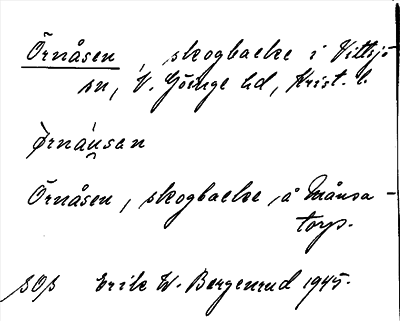 Örnåsen, skogbacke i Vittsjö
sn, V. Göinge hd, Krist. l.
Ørnåu̯san
Örnåsen, skogbacke, å Månsa-
torp.
SOS Erik W. Bergenrud 1945.